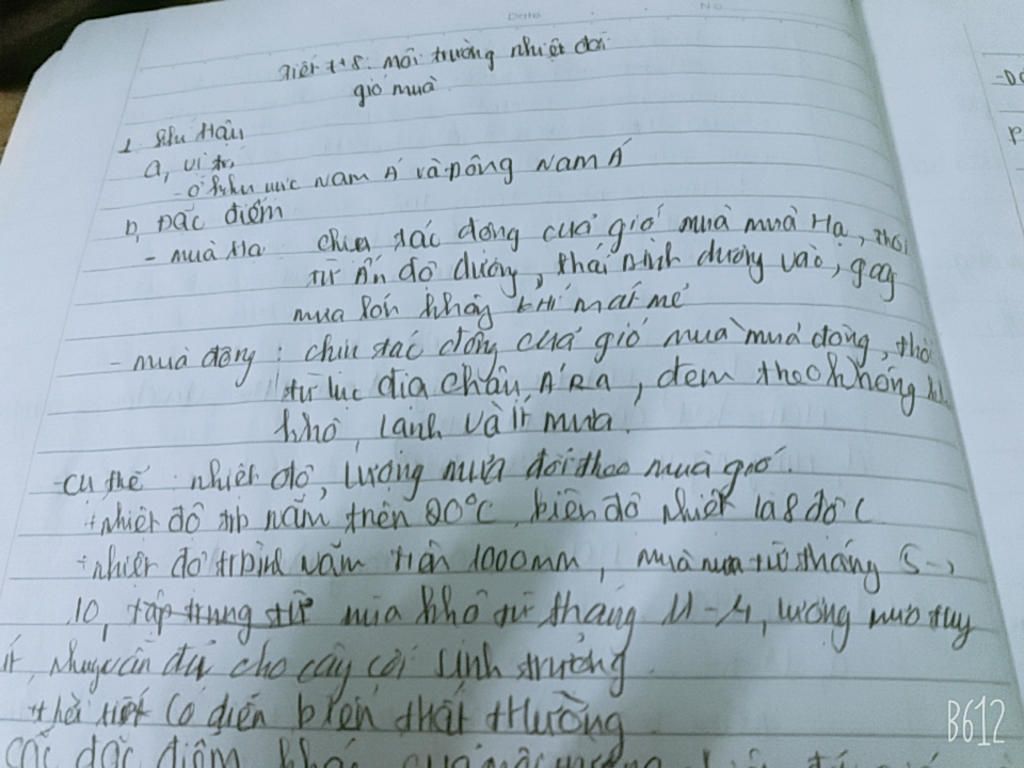 Date No
Tiết t+8: môi trường nhiệt đới
gió mùa
1. Khí Hậu
a, vị trí
- ở khu vực Nam Á và Đông Nam Á
b, Đặc điểm
- mùa Hạ chịu tác động của gió mùa mùa Hạ, thổi
từ Ấn độ dương, thái bình dương vào, gây
mưa lớn không khí mát mẻ
- mùa đông: chịu tác động của gió mùa mùa đông, thổi
từ lục địa châu Á ra, đem theo không
khô, lạnh và ít mưa.
- cụ thể: nhiệt độ, lượng mưa đổi theo mùa gió.
+ nhiệt độ tb năm trên 20°C, biên độ nhiệt là 8 độ C
+ nhiệt độ năm trên 1000mm, mùa mưa từ tháng 5 ->
10, tập trung từ mùa khô từ tháng 11-4, lượng mưa tuy
ít, vẫn đủ cho cây cối sinh trưởng
thời tiết có diễn biến thất thường
các đặc điểm
B612